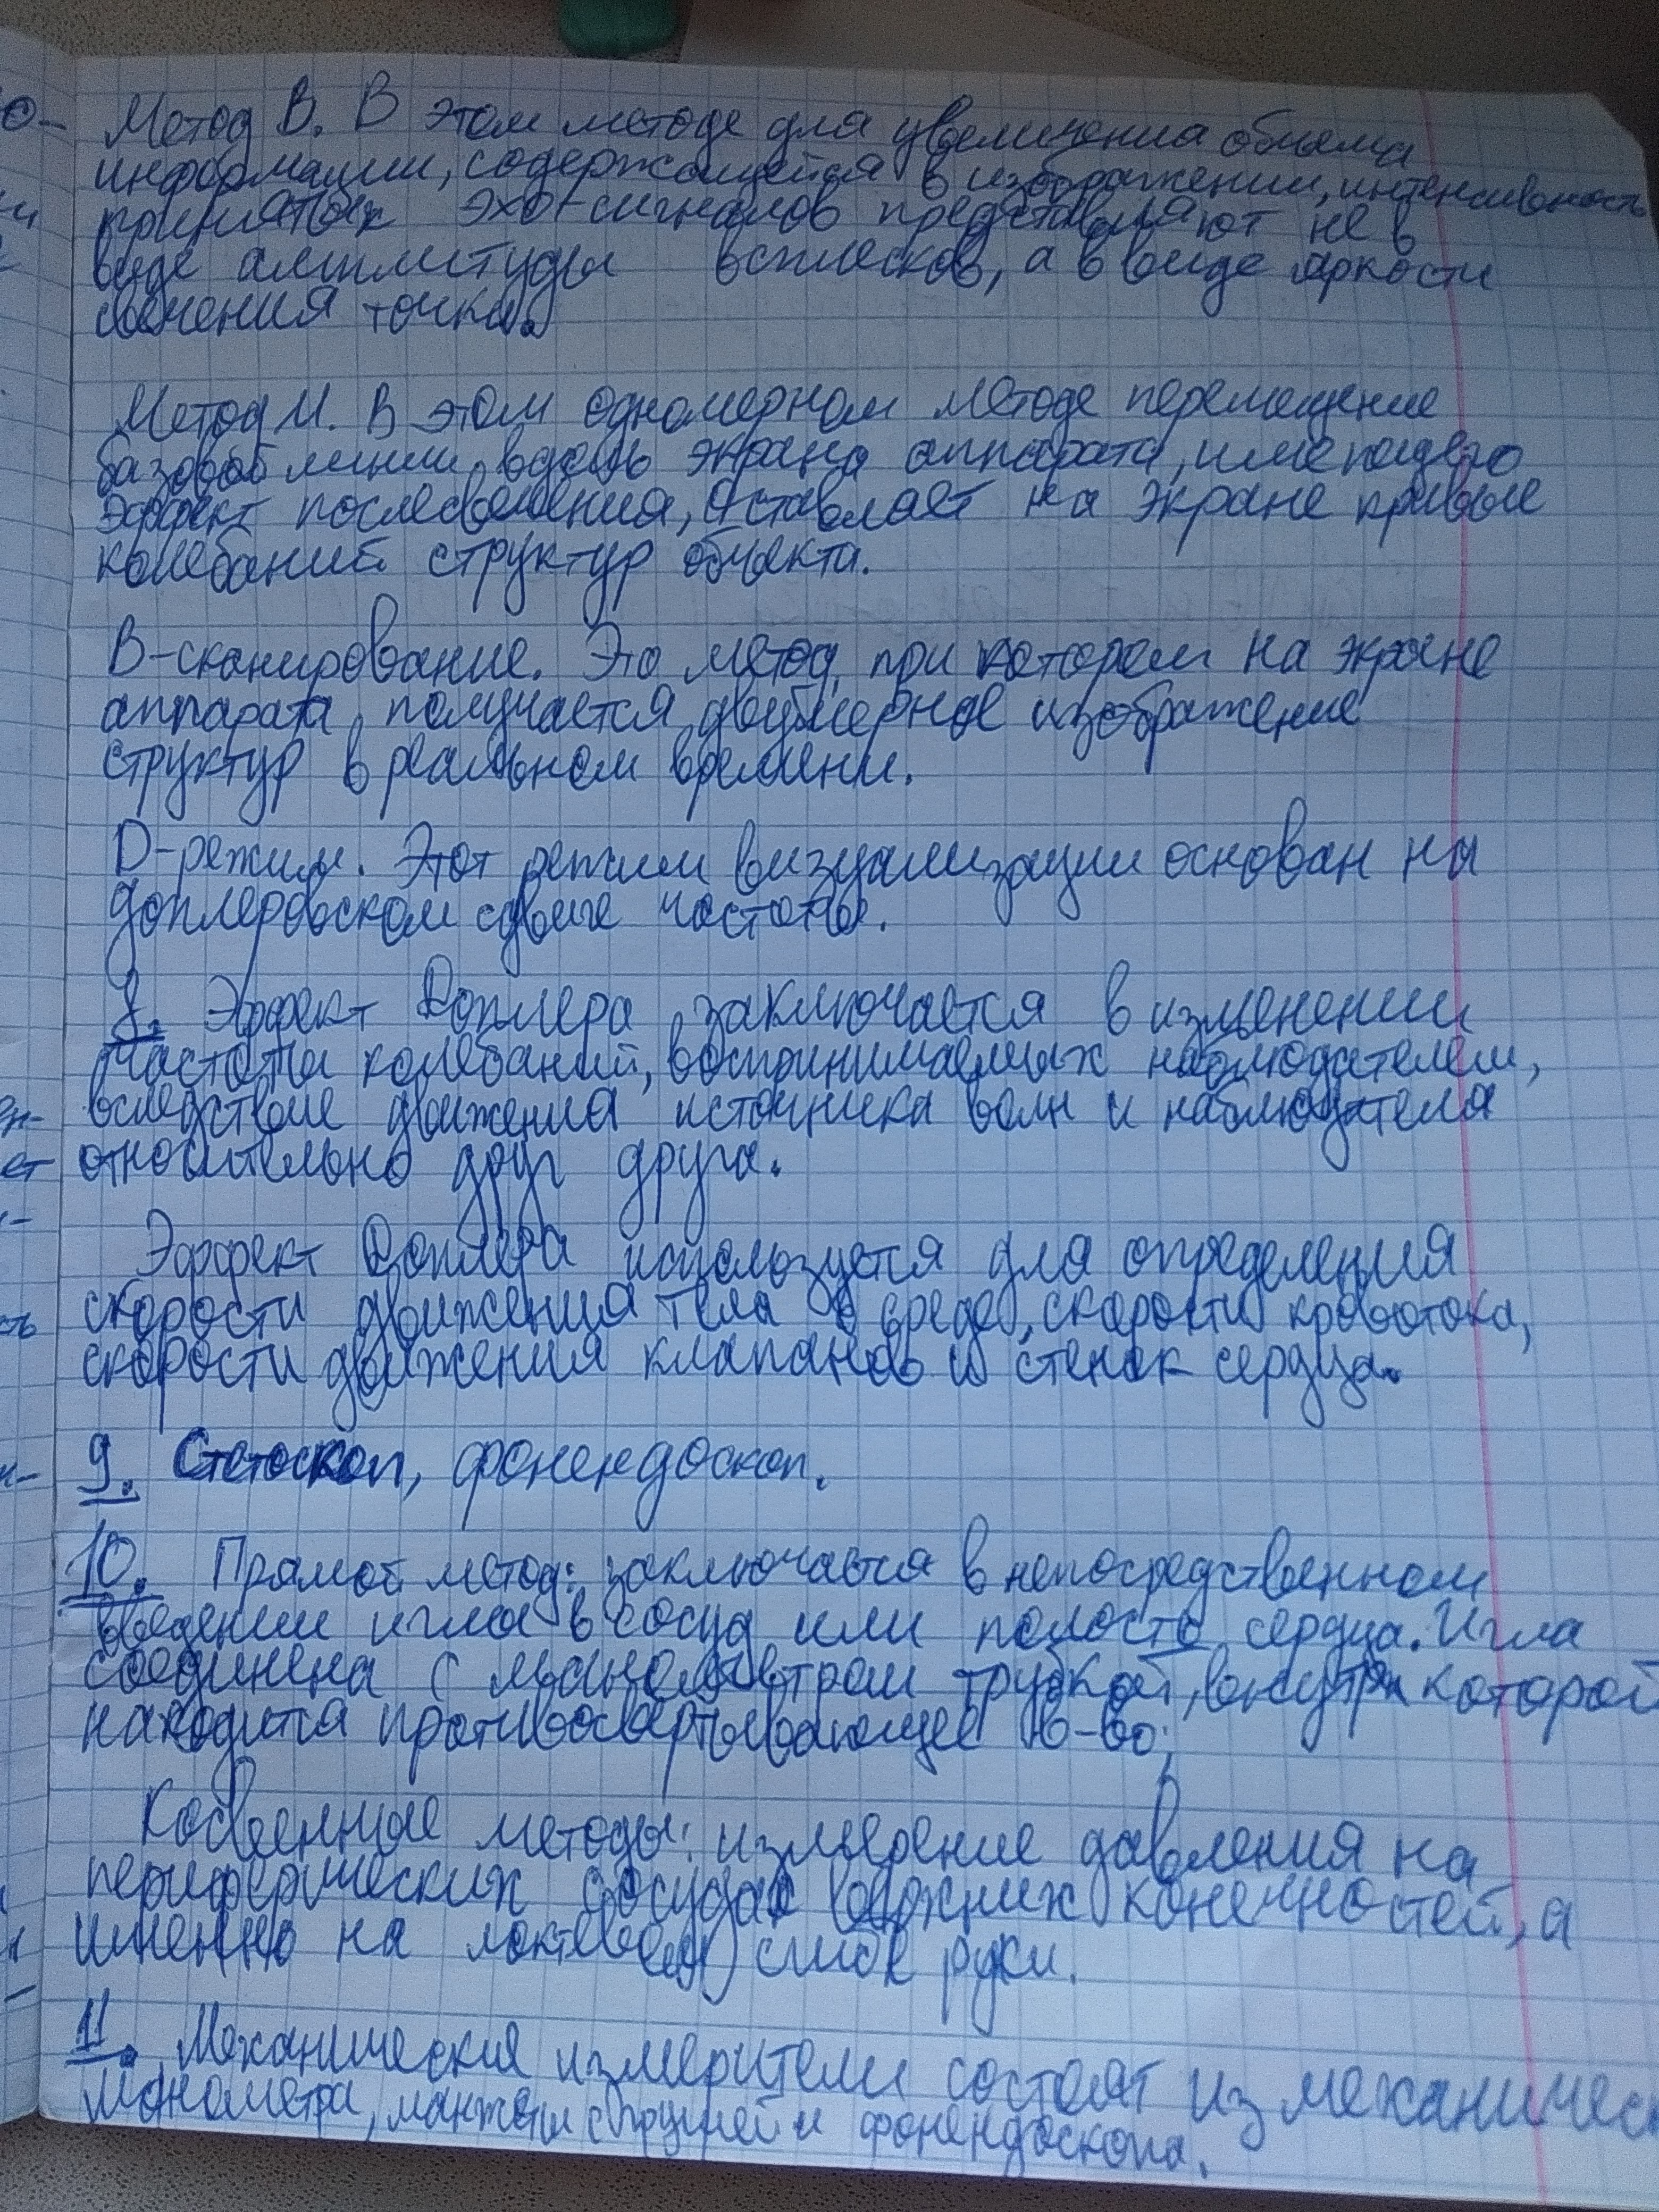 Метод В. В этом методе для увеличения объема
информации, содержащейся в изображении, интенсивность
принятых эхо-сигналов представляют не в
виде амплитуды всплесков, а в виде яркости
свечения точки.
Метод М. В этом одномерном методе перемещение
базовой линии вдоль экрана аппарата, имеющего
эффект послесвечения, оставляет на экране кривые
колебаний структур объекта.
В-сканирование. Это метод, при котором на экране
аппарата получается двумерное изображение
структур в реальном времени.
D-режим. Этот режим визуализации основан на
доплеровском сдвиге частоты.
8. Эффект Доплера заключается в изменении
частоты колебаний, воспринимаемых наблюдателем,
вследствие движения источника волн и наблюдателя
относительно друг друга.
Эффект Доплера используется для определения
скорости движения тела в среде, скорости кровотока,
скорости движения клапанов и стенок сердца.
9. Стетоскоп, фонендоскоп.
10. Прямой метод: заключается в непосредственном
введении иглы в сосуд или полость сердца. Игла
соединена с манометром трубкой, внутри которой
находится противосвертывающее в-во;
Косвенные методы: измерение давления на
периферических сосудах верхних конечностей, а
именно на локтевом сгибе руки.
11. Механические измерители состоят из механическ
манометра, манжеты с грушей и фонендоскопа.